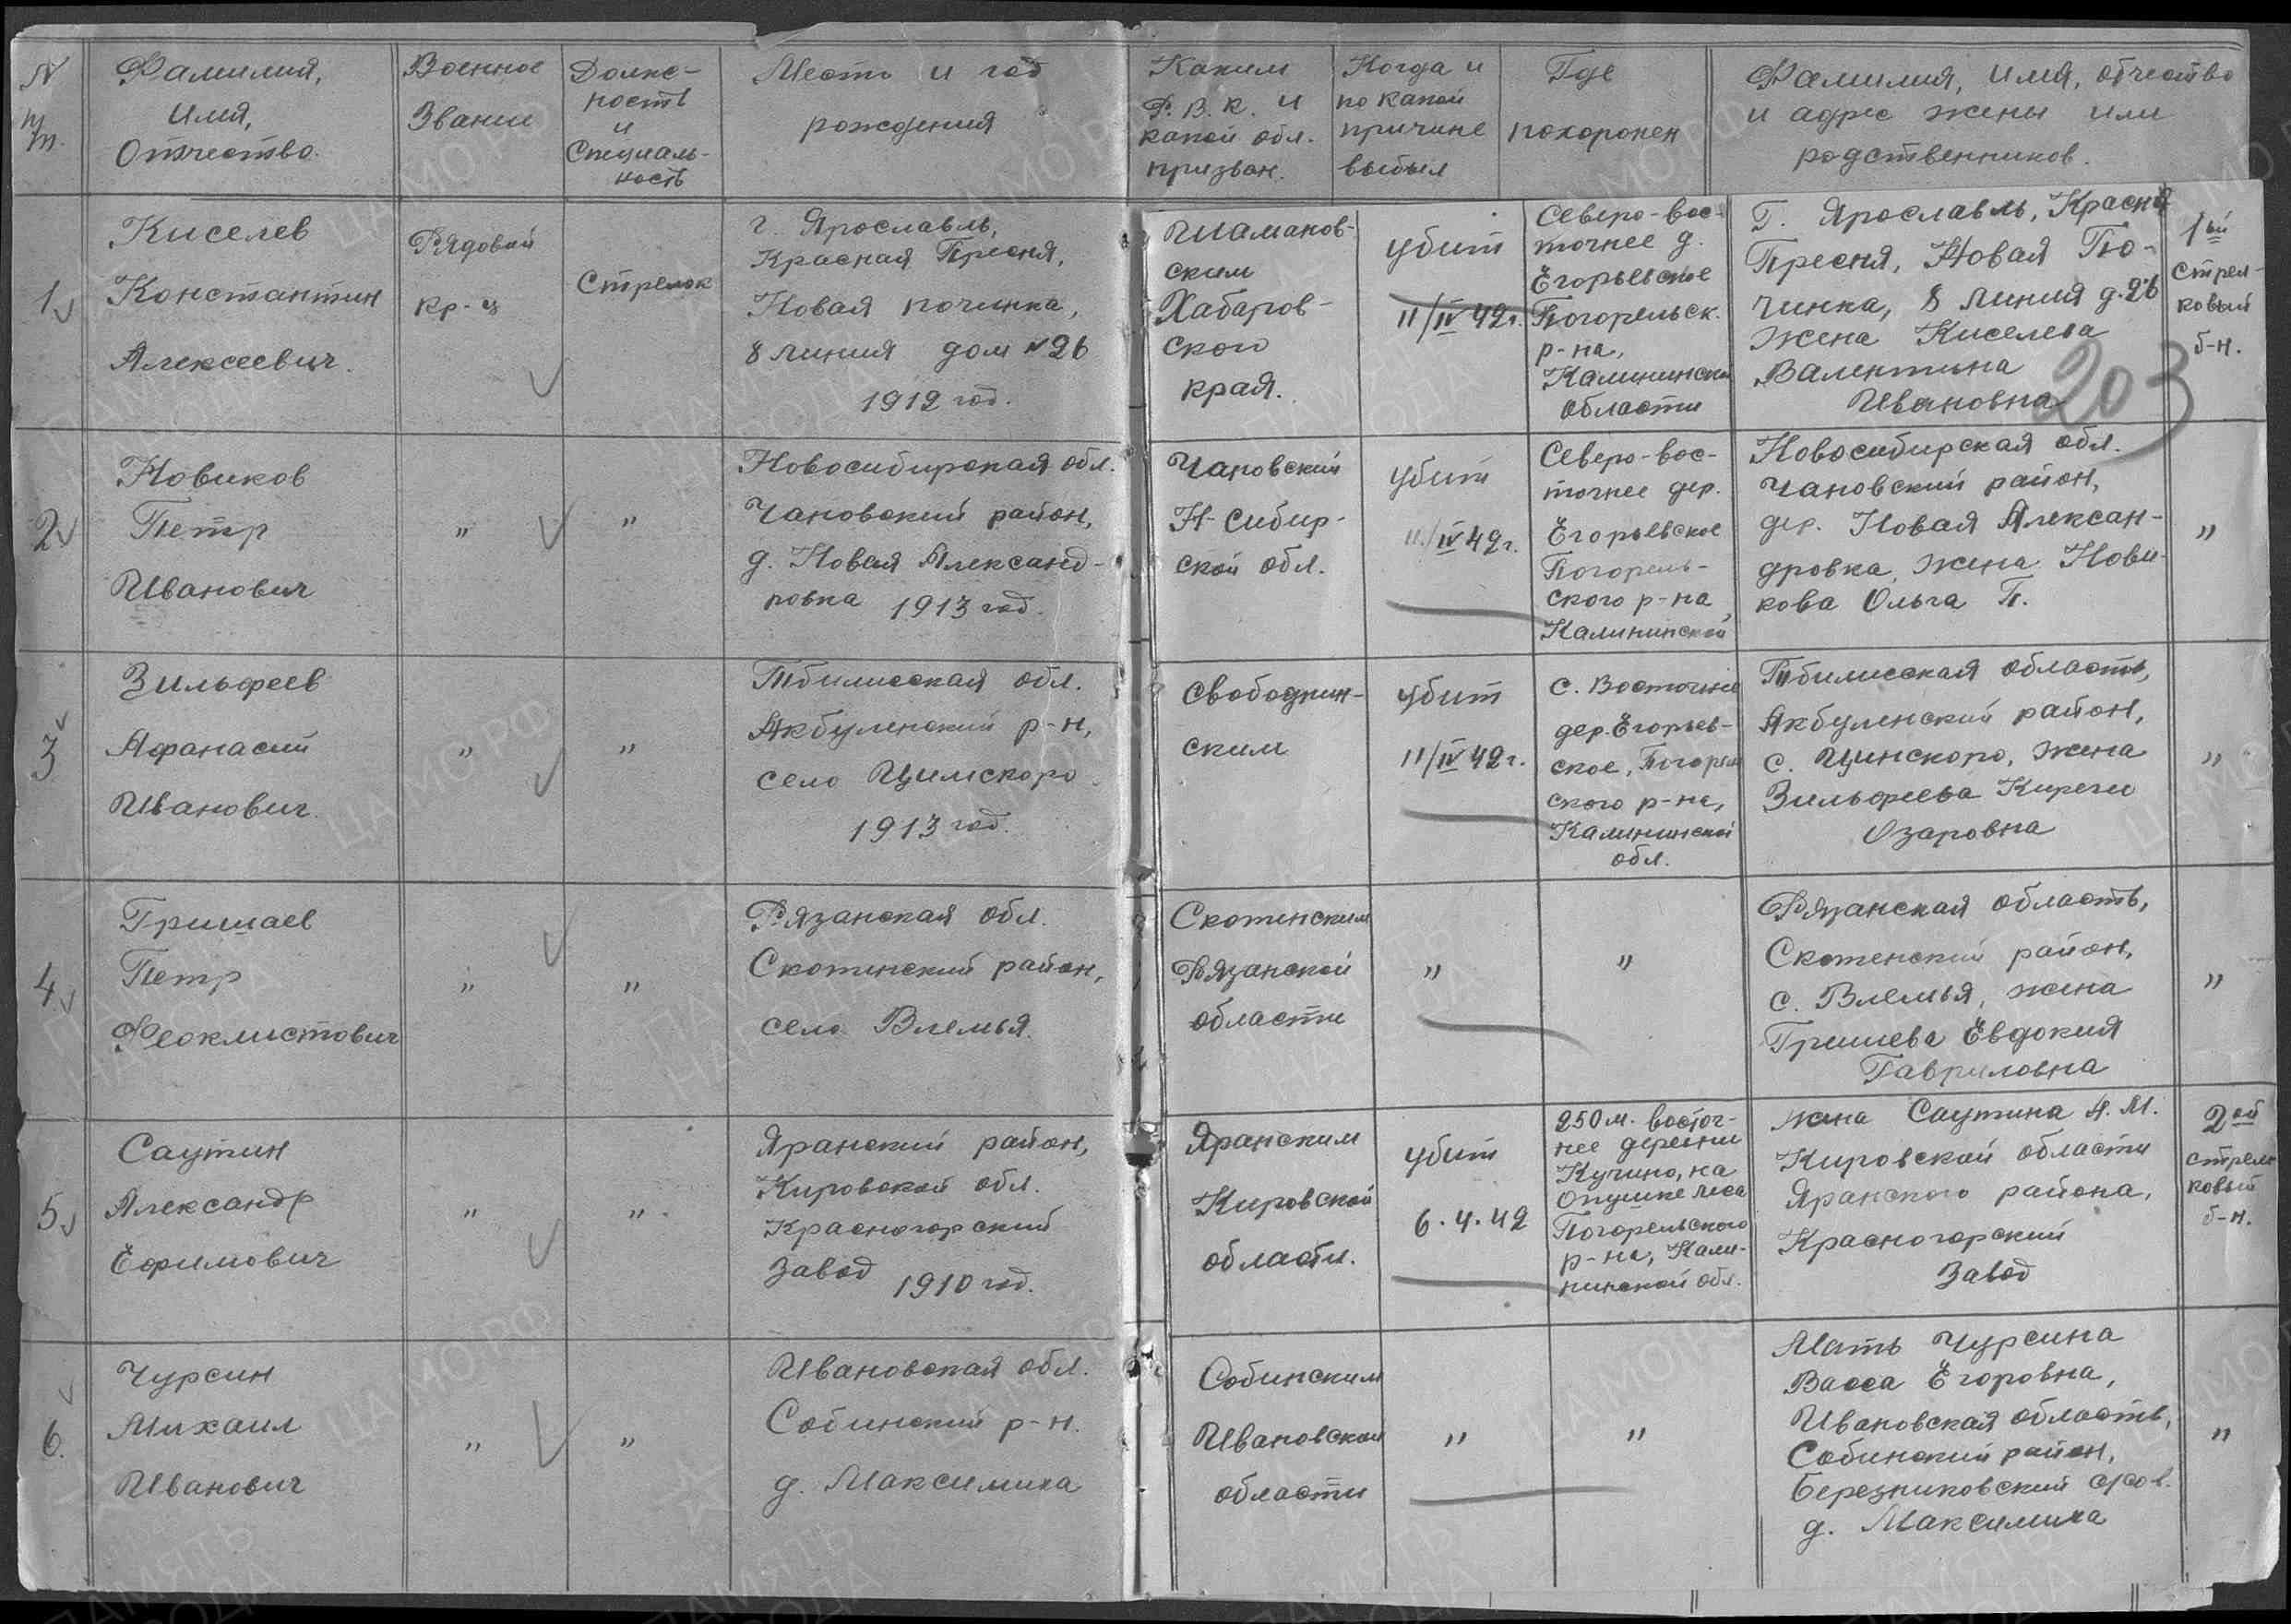 N
п/п.
Фамилия,
Имя,
Отчество.
Военное
Звание
Долж-
ность
и
Специаль-
ность
Место и год
рождения
Каким
Р.В.К. и
какой обл.
призван.
Когда и
по какой
причине
выбыл
Где
похоронен
Фамилия, имя, отчество
и адрес жены или
родственников.
1
Киселев
Константин
Алексеевич.
Рядовой
кр-ц
Стрелок
г. Ярославль,
Красная Пресня,
Новая починка,
8 линия дом №26
1912 год.
Шаманов-
ским
Хабаров-
ского
края.
убит
11/IV 42г.
Северо-вос-
точнее д.
Егорьевское
Погорельск.
р-на,
Калининской
области
Г. Ярославль, Красная
Пресня, Новая По-
чинка, 8 линия д.26
жена Киселева
Валентина
Ивановна
1ый
стрел-
ковый
б-н.
203
2
Новиков
Петр
Иванович
"
"
Новосибирская обл.
Чановский район,
д. Новая Александ-
ровка 1913 год.
Чановский
Н-Сибир-
ской обл.
убит
11/IV 42г.
Северо-вос-
точнее дер.
Егорьевское
Погорель-
ского р-на,
Калининской
Новосибирская обл.
Чановский район,
дер. Новая Алексан-
дровка, жена Нови-
кова Ольга П.
"
3
Зильфеев
Афанасий
Иванович.
"
"
Тбилисская обл.
Акбуленский р-н,
село Цимскоро
1913 год.
Свободнин-
ским
убит
11/IV 42г.
С. Восточнее
дер. Егорьев-
ское, Погорель
ского р-на,
Калининской
обл.
Тбилисская область,
Акбуленский район,
с. Цинскоро, жена
Зильфеева
Озаровна
"
4
Гришаев
Петр
Феоклистович
"
"
Рязанская обл.
Скопинский район,
село Влемья.
Скопинским
Рязанской
области
"
"
Рязанская область,
Скопенский район,
с. Влемья, жена
Гришева Евдокия
Гавриловна
"
5
Саутин
Александр
Ефимович
"
"
Яранский район,
Кировской обл.
Красногорский
Завод 1910 год.
Яранским
Кировской
области.
убит
6.4.42
250 м. восточ-
нее деревни
Кучино, на
Опушке леса
Погорельского
р-на, Кали-
нинской обл.
жена Саутина А.М.
Кировской области
Яранского района,
Красногорский
Завод
2ой
стрелк
ковый
б-н.
6.
Чурсин
Михаил
Иванович
"
"
Ивановская обл.
Собинский р-н.
д. Максимиха
Собинским
Ивановской
области
"
"
Мать Чурсина
Васса Егоровна,
Ивановская область,
Собинский район,
Березниковский с/сов.
д. Максимиха
"
ПАМЯТЬ
НАРОДА
ЦАМО РФ